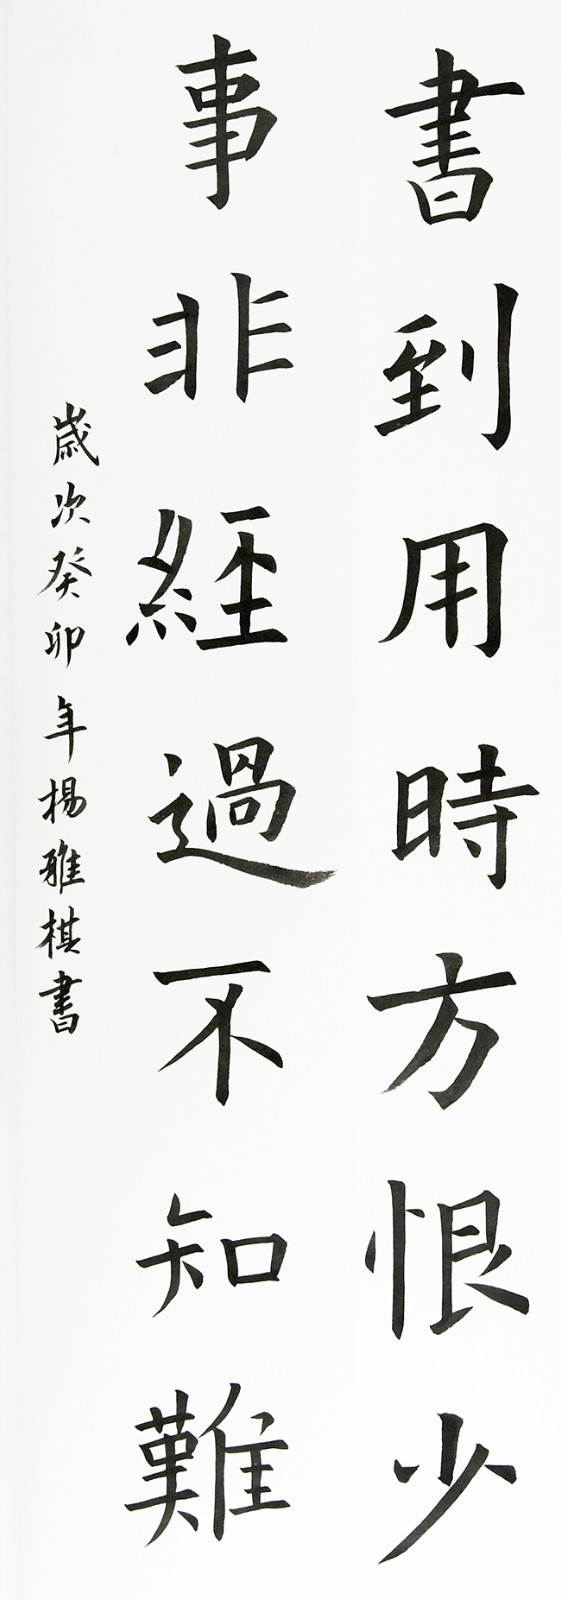 書到用時方恨少
事非經過不知難
歲次癸卯年楊雅棋書